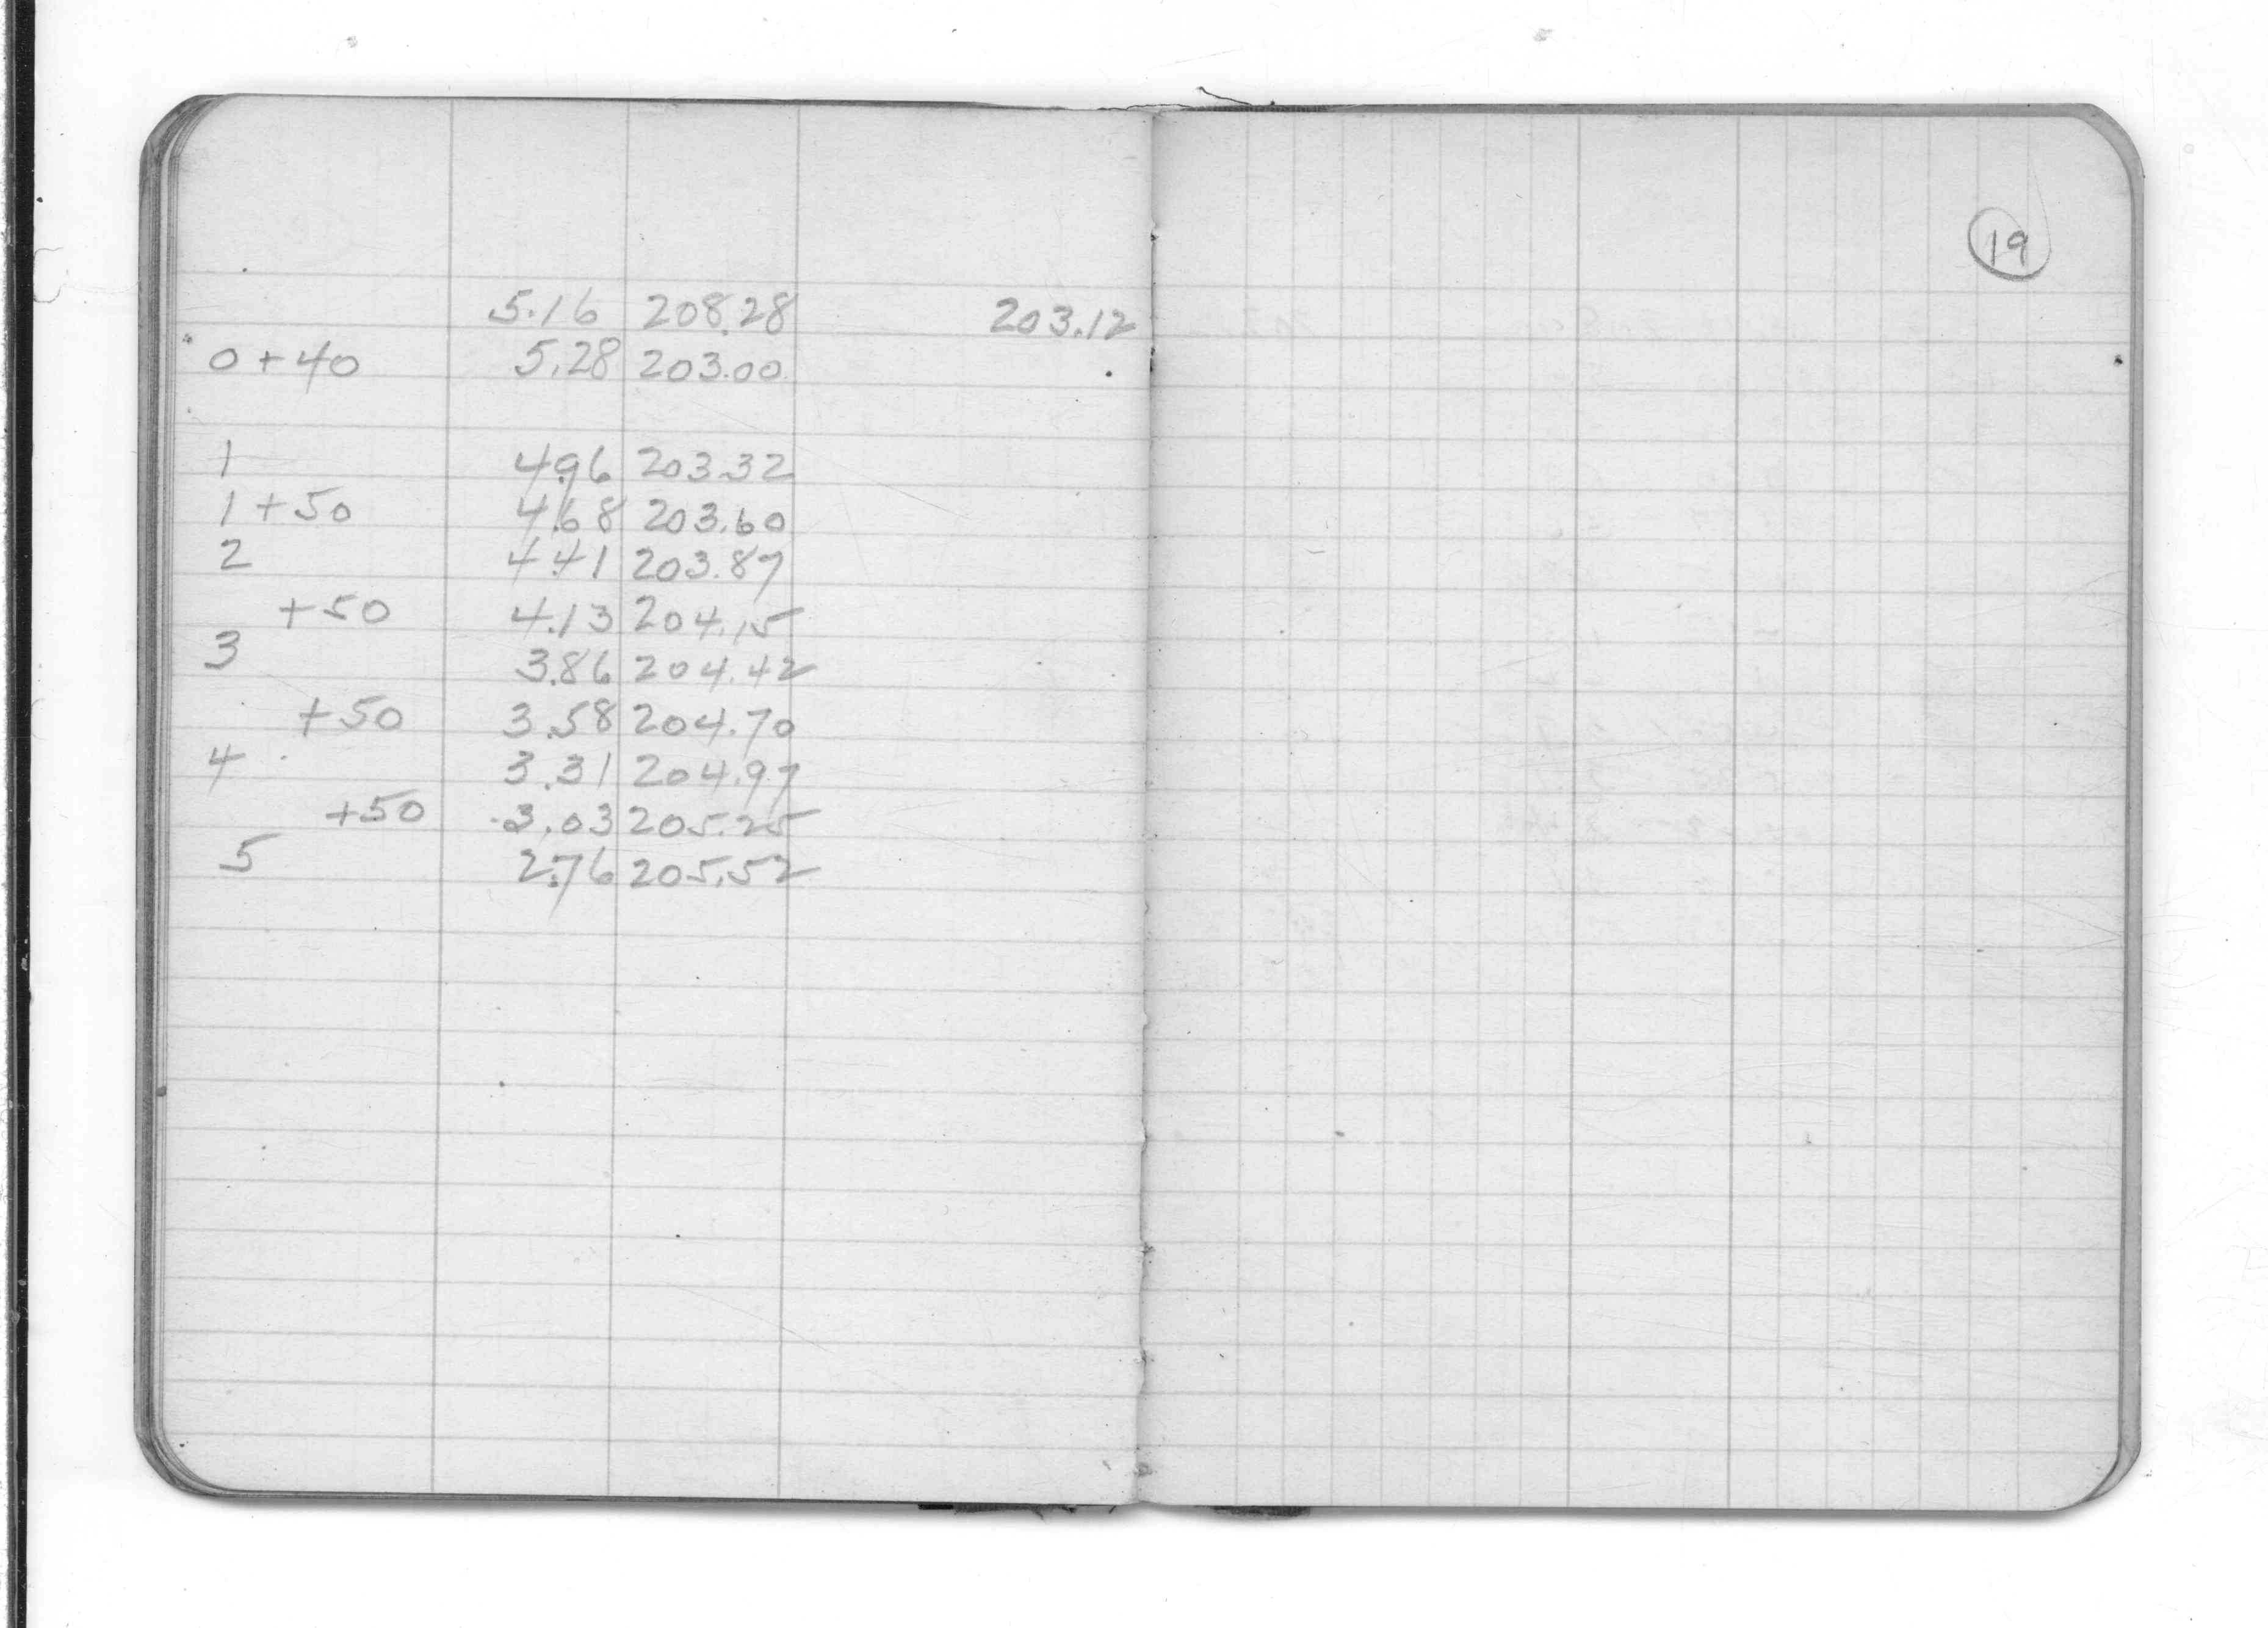 5.16 208.28 203.12
0+40 5.28 203.00
1 4.96 203.32
1+50 4.68 203.60
2 4.41 203.87
+50 4.13 204.15
3 3.86 204.42
+50 3.58 204.70
4 3.31 204.97
+50 3.03 205.25
5 2.76 205.52
19